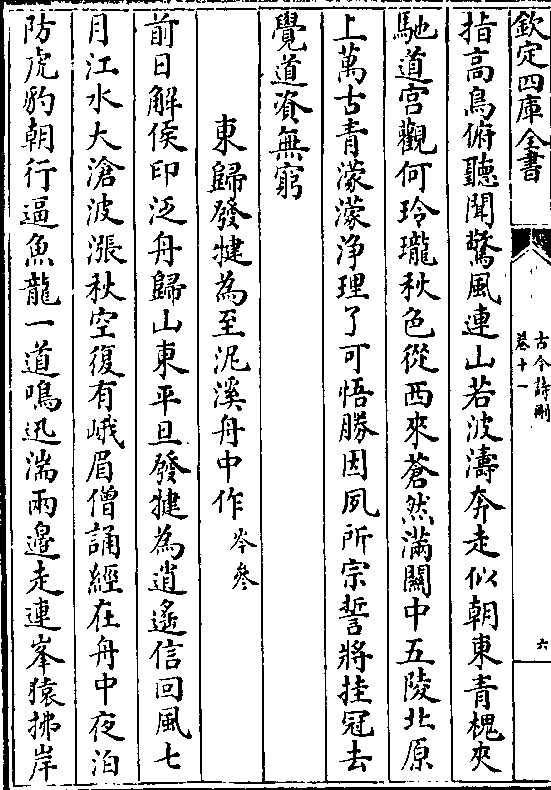 欽定四庫全書
古今詩刪
卷十一
六
指高鳥俯聽聞驚風連山若波濤奔走似朝東青槐夾
馳道宫觀何玲瓏秋色從西來蒼然滿關中五陵北原
上萬古青濛濛浄理了可悟勝因夙所宗誓將挂冠去
覺道資無窮
東歸發犍為至泥溪舟中作 岑參
前日解侯印泛舟歸山東平旦發犍為逍遙信回風七
月江水大滄波漲秋空復有峨眉僧誦經在舟中夜泊
防虎豹朝行逼魚龍一道鳴迅湍兩邊走連峯猿拂岸